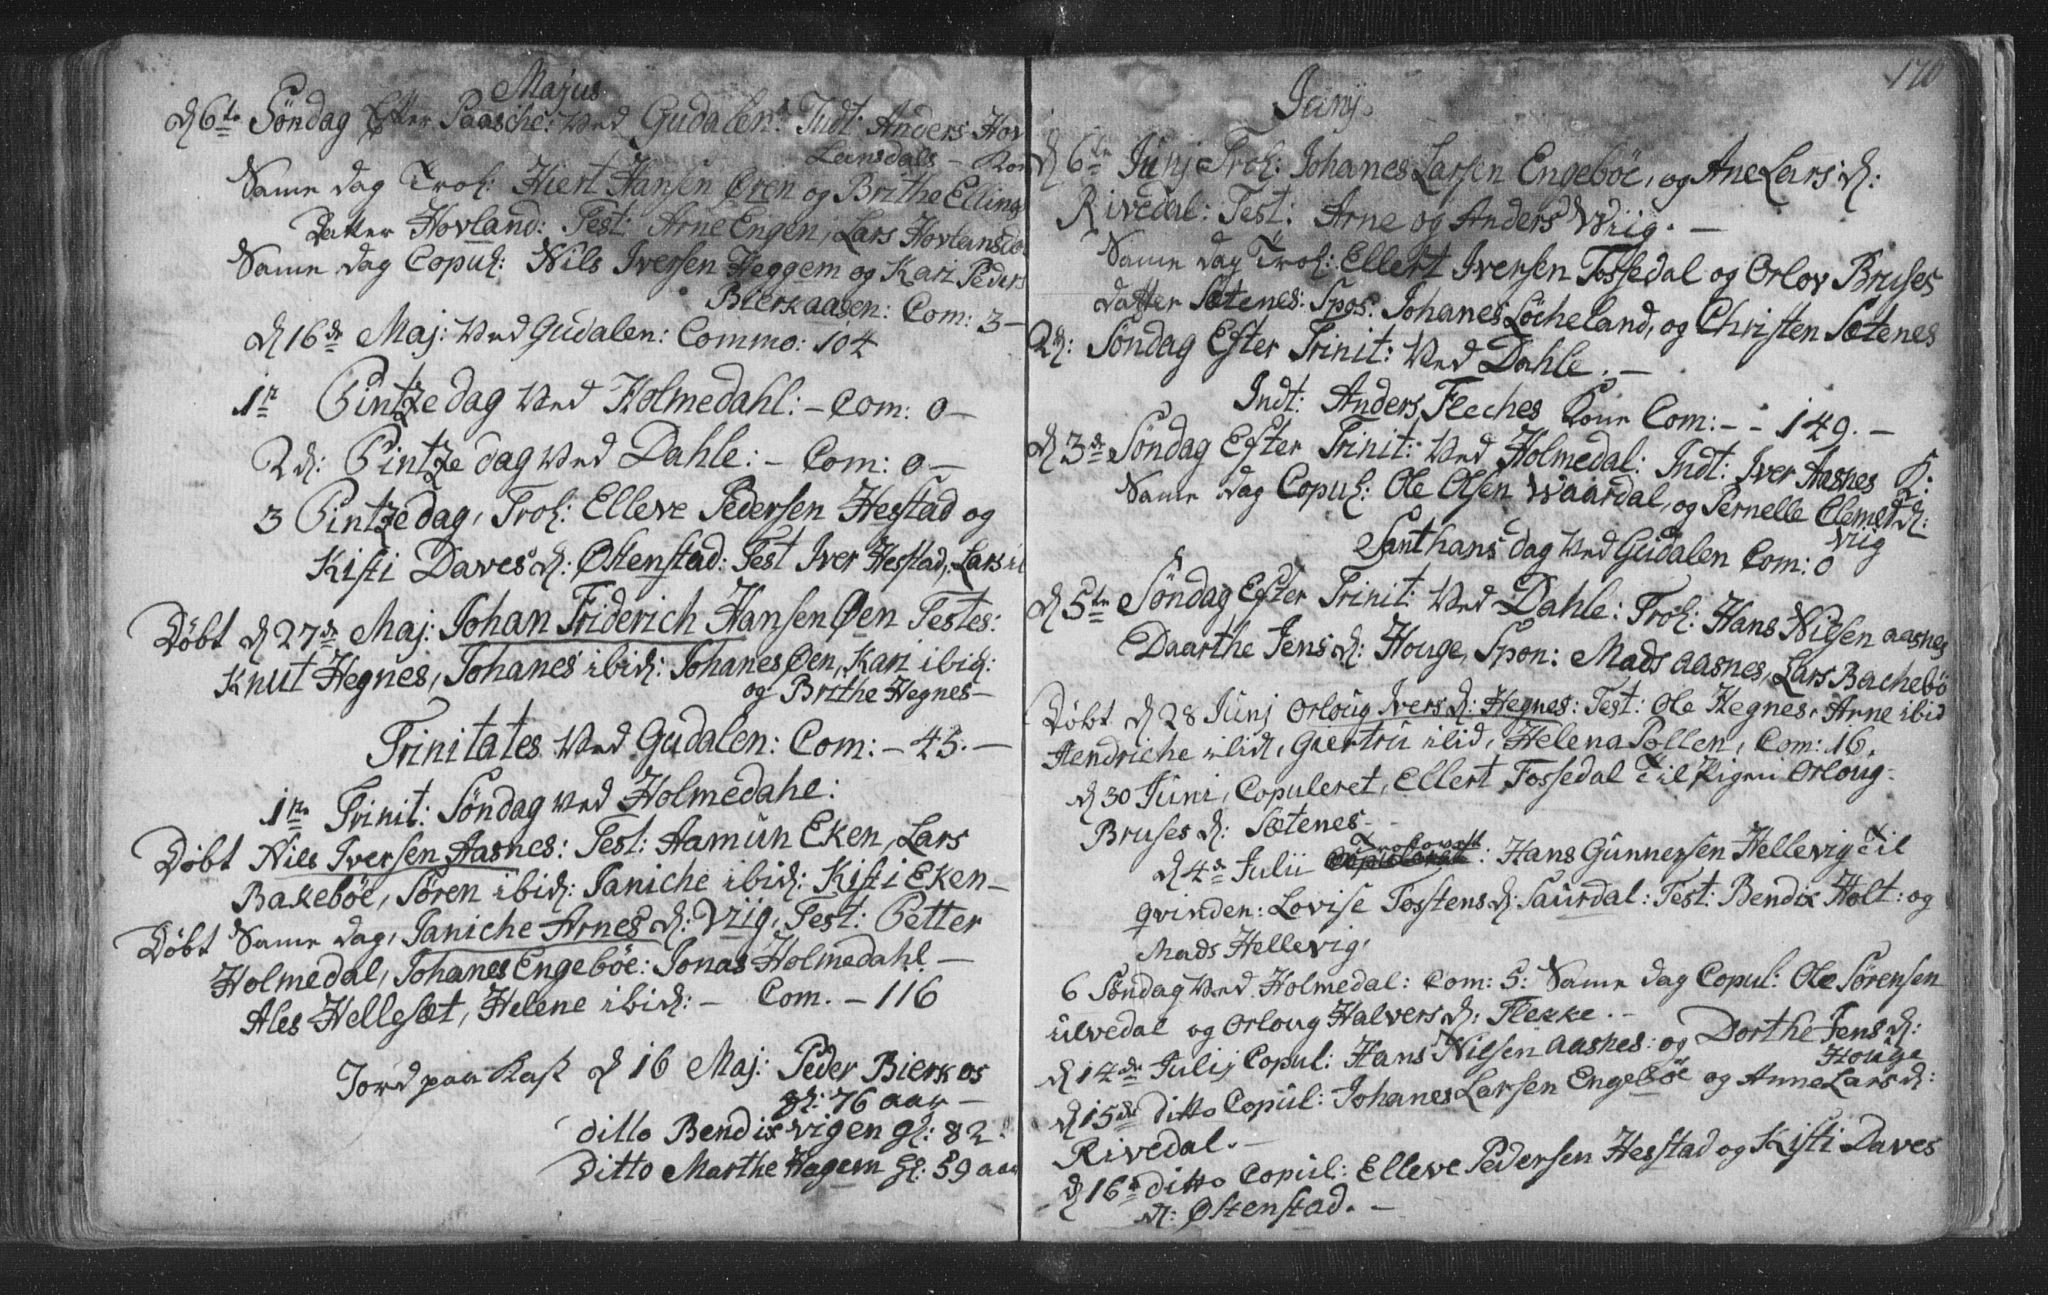 Majus
d 6te Søndag Efter Paasche: Ved Gudalen: Indt: Anders Hov
Lansdals – Kon
Same dag Trol: Hiert Hansen Øren og Brithe Ellings
Datter Hovland: Test: Arne Engen, Lars Hovlansda
Same dag Copul: Nils Iversen Heggem og Kari Peders
Bierkaasen: Com: 3 –
d 16de Maj: Ved Gudalen: Commo: 104
1te Pintze dag Ved Holmedahl: – Com: 0 –
2d: Pintze dag Ved Dahle: – Com: 0 –
3 Pintze dag, Trol: Elleve Pedersen Hestad og
Kisti Daves d: Østenstad: Test Iver Hestad, Lars i
Døbt d 27de Maj: Johan Friderich Hansen Øen Testes:
Knut Hegnes, Johanes ibid: Johanes Øen, Kari ibid:
og Brithe Hegnes –
Trinitates Ved Gudalen: Com: – 45. –
1te Trinit: Søndag Ved Holmedahl:
Døbt Nils Iversen Aasnes: Test: Aamun Eken, Lars
Bakebøe, Søren ibid: Janiche ibid: Kisti Eken –
Døbt Same dag, Janiche Arnes d: Viig, Test: Petter
Holmedal, Johanes Engebøe: Jonas Holmedahl –
Ales Hellesæt, Helene ibid: – Com. – 116
Jord paa Kast d 16 Maj: Peder Bierkos
gl: 76 aar –
ditto Bendix Vigen gl: 82.
Ditto Marthe Hagem gl: 59 aar
170
Junij.
d 6te Junj Trol: Johanes Larsen Engebøe, og Ane Lars d:
Rivedal: Test: Arne og Anders Wiig. –
Same dag Trol: Ellert Iversen Fossedal og Orlov Bruses
datter Sætenes: Spos: Johanes Løcheland, og Christen Sætenes
2d: Søndag Efter Trinit: Ved Dahle. –
Indt: Anders Fleches Kone Com: – – 149. –
d 3de Søndag Efter Trinit: Ved Holmedal: Indt: Iver Aasnes K:
Same dag Copul: Ole Olsen Waardal, og Pernelle Clemet d:
Viig
Sant hans dag Ved Gudalen Com: 0
d 5te Søndag Efter Trinit: Ved Dahle: Trol: Hans Nilsen aasnes
Daarthe Jens d: Houge, Spon: Mads aasnes, Lars Bachebø
Døbt d 28 Junj Orloug Ivers d: Hegnes: Test: Ole Hegnes, Arne ibid
Hendriche ibid, Giertru ibid, Helena Pollen, Com: 16.
d 30 Juni, Copuleret, Ellert Fossedal til Pigen Orloug
Bruses d: Sætenes –
d 4de Julii Troloværet: Hans Gunnersen Hellevig til
qvinden: Lovise Tostens d: Saurdal: Test: Bendix Holt: og
Mads Hellevig,
6 Søndag Ved Holmedal: Com: 5: Same dag Copul: Ole Sørensen
ulvedal og Orloug Halvers d: Flekke. –
d 14de Julij Copul: Hans Nilsen aasnes: og Dorthe Jens d:
Houge
d 15de ditto Copul: Johanes Larsen Engebøe og Anne Lars d:
Rivedal. –
d 16de ditto Copul: Elleve Pedersen Hestad og Kisti Daves
d: Østenstad. –